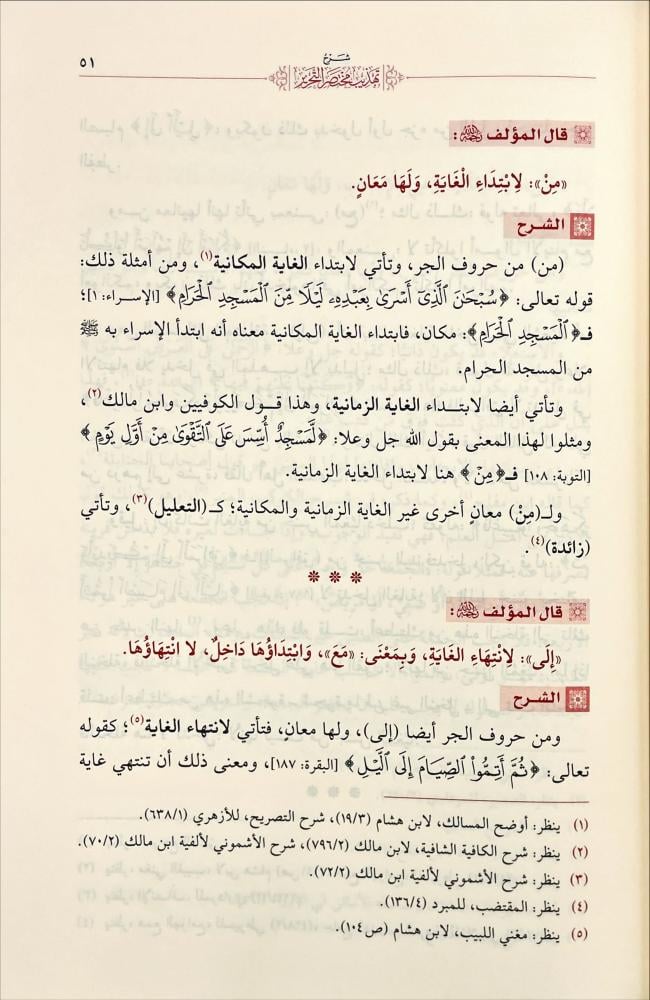 ٥١
شرح
تهذيب مختصر التحرير
قال المؤلف رحمه الله:
«مِنْ»: لِابْتِدَاءِ الْغَايَةِ، وَلَهَا مَعَانٍ.
الشرح
(من) من حروف الجر، وتأتي لابتداء الغاية المكانية(١)، ومن أمثلة ذلك:
قوله تعالى: ﴿سُبْحَٰنَ ٱلَّذِىٓ أَسْرَىٰ بِعَبْدِهِۦ لَيْلًا مِّنَ ٱلْمَسْجِدِ ٱلْحَرَامِ﴾ [الإسراء: ١]؛
فـ﴿ٱلْمَسْجِدِ ٱلْحَرَامِ﴾: مكان، فابتداء الغاية المكانية معناه أنه ابتدأ الإسراء به ﷺ
من المسجد الحرام.
وتأتي أيضا لابتـداء الغاية الزمانية، وهذا قـول الكوفيين وابن مالك(٢)،
ومثلوا لهذا المعنى بقول الله جل وعلا: ﴿لَّمَسْجِدٌ أُسِّسَ عَلَى ٱلتَّقْوَىٰ مِنْ أَوَّلِ يَوْمٍ﴾
[التوبة: ١٠٨] فـ﴿مِنْ﴾ هنا لابتداء الغاية الزمانية.
ولـ(مِنْ) معانٍ أخرى غير الغاية الزمانية والمكانية؛ كـ(التعليل)(٣)، وتأتي
(زائدة)(٤).
* * *
قال المؤلف رحمه الله:
«إِلَى»: لِانْتِهَاءِ الغَايَةِ، وَبِمَعْنَى: «مَعَ»، وَابْتِدَاؤُهَا دَاخِلٌ، لا انْتِهَاؤُهَا.
الشرح
ومن حروف الجر أيضا (إلى)، ولها معانٍ، فتأتي لانتهاء الغاية(٥)؛ كقوله
تعالى: ﴿ثُمَّ أَتِمُّوا۟ ٱلصِّيَامَ إِلَى ٱلَّيْلِ﴾ [البقرة: ١٨٧]، ومعنى ذلك أن تنتهي غاية
(١) ينظر: أوضح المسالك، لابن هشام (١٩/٣)، شرح التصريح، للأزهري (٦٣٨/١).
(٢) ينظر: شرح الكافية الشافية، لابن مالك (٧٩٦/٢)، شرح الأشموني لألفية ابن مالك (٧٠/٢).
(٣) ينظر: شرح الأشموني لألفية ابن مالك (٧٢/٢).
(٤) ينظر: المقتضب، للمبرد (١٣٦/٤).
(٥) ينظر: مغني اللبيب، لابن هشام (ص١٠٤).